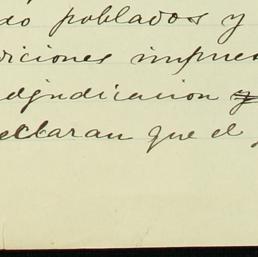 do poblados y
diciones impue
adjudicacion y
eclaran que el